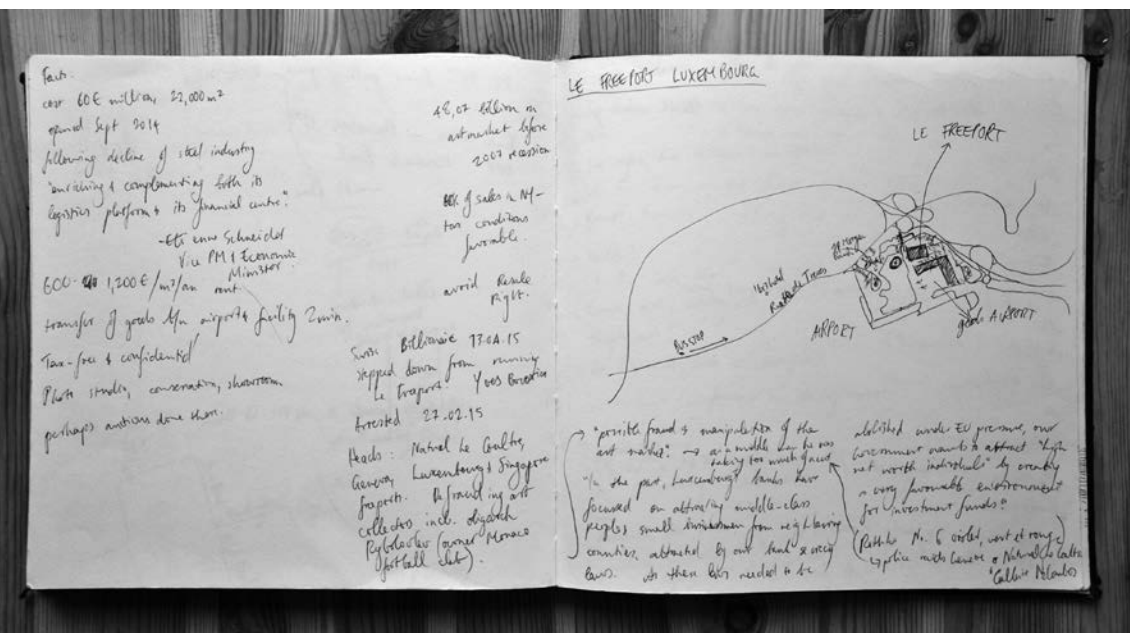 Facts.
cost 60€ million, 22,000 m²
opened Sept 2014
following decline of steel industry
"enriching & complementing both its
logistics platform & its financial centre."
- Etienne Schneider
Vice PM & Economic
Minister
600- 1,200€/m²/an rent
transfer of goods b/n airport & facility 2min.
Tax-free & confidential
Photo studio, conservation, showroom
perhaps auctions done there.
48,07 billion in
art market before
2007 recession
% of sales in NY -
tax conditions
favorable.
avoid Resale
right.
Swiss Billionaire 13.04.15
stepped down from running
Le Freeport Yves Bouvier
Arrested 27.02.15
Heads: Natural Le Coultre,
Geneva, Luxembourg & Singapore
freeports. Defrauding art
collectors incl. oligarch
Rybolovlev (owner Monaco
football club).
LE FREEPORT LUXEMBOURG
LE FREEPORT
Bus STOP
AIRPORT
goods AIRPORT
"possible fraud & manipulation of the
art market." → as a middle man he was
taking too much
"In the past, Luxembourg's banks have
focused on attracting middle-class
peoples small from neighboring
countries, attracted by our bank secrecy
laws. As these laws needed to be
abolished under EU pressure, our
Government wants to attract "high
net worth individuals" by creating
a very favourable environment
for investment funds."
(Rothko No. 6 violet, vert et rouge)
police raids Geneva Natural Le Coultre